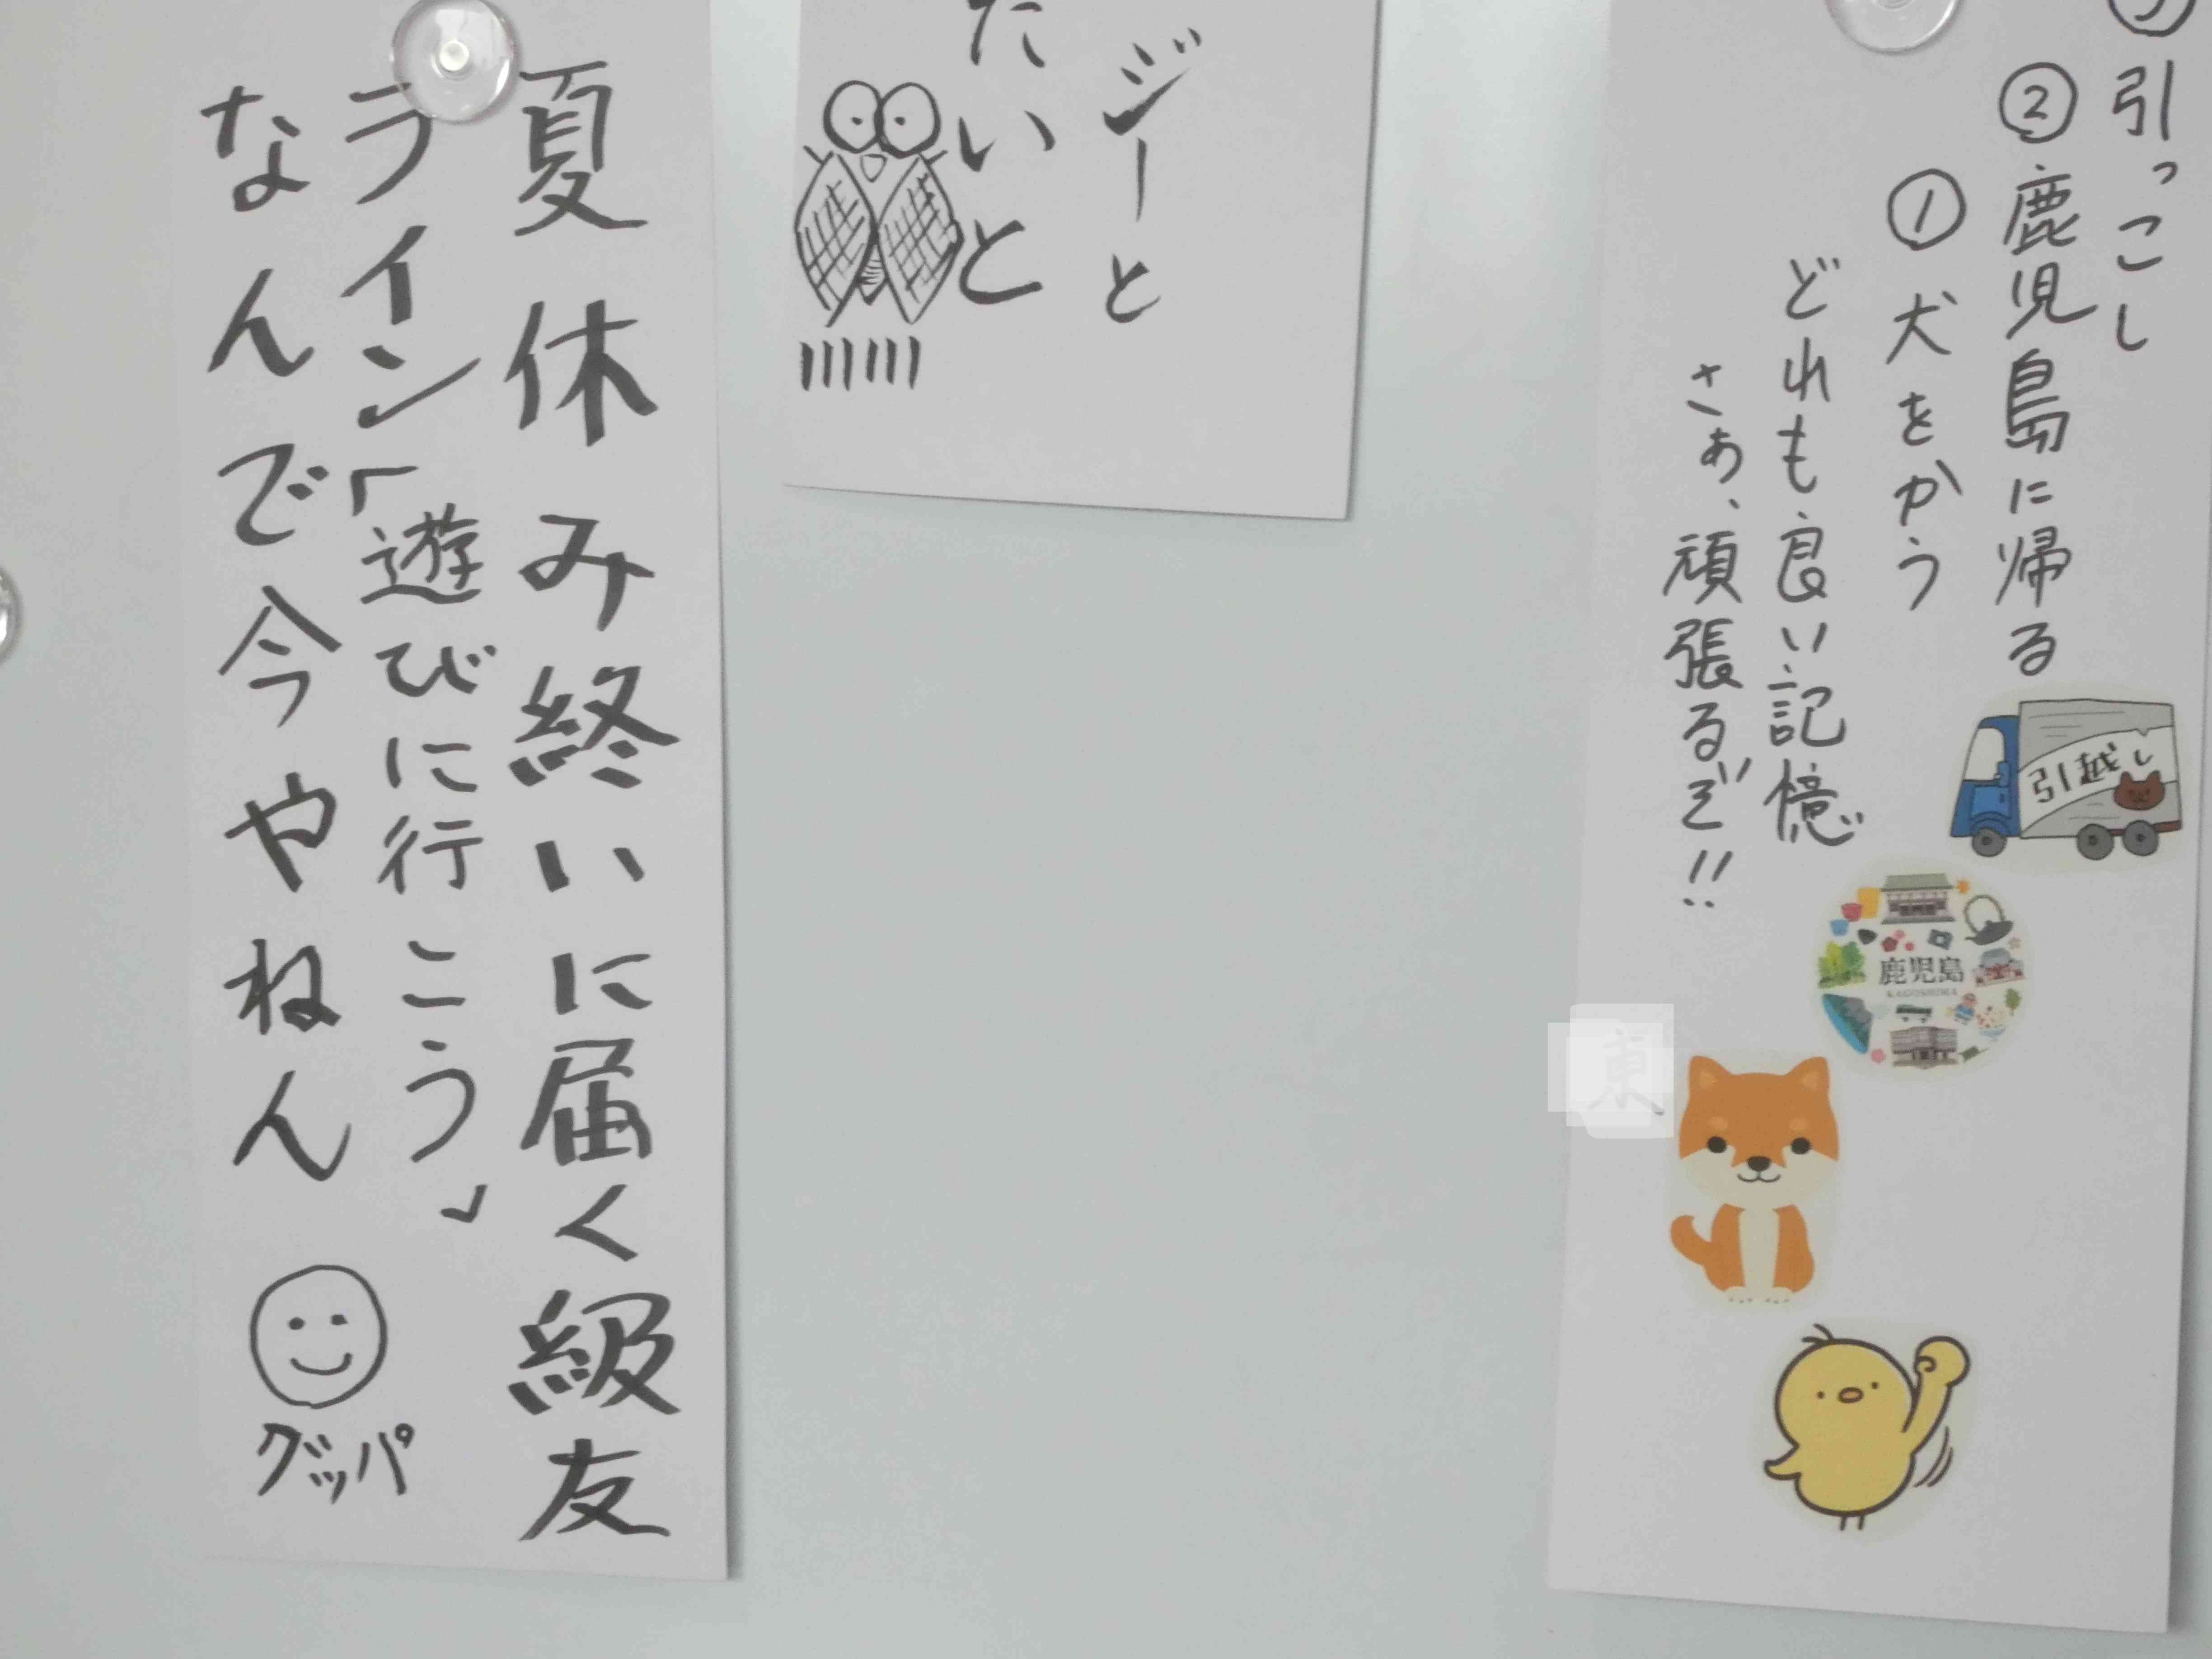 引っこし
②鹿児島に帰る
①犬をかう
どれも良い記憶
さぁ、頑張るぞ!!
引越し
鹿児島
KAGOSHIMA
ジーと
たいと
夏休み終いに届く級友
ライン「遊びに行こう」
なんで今やねん
グッパ